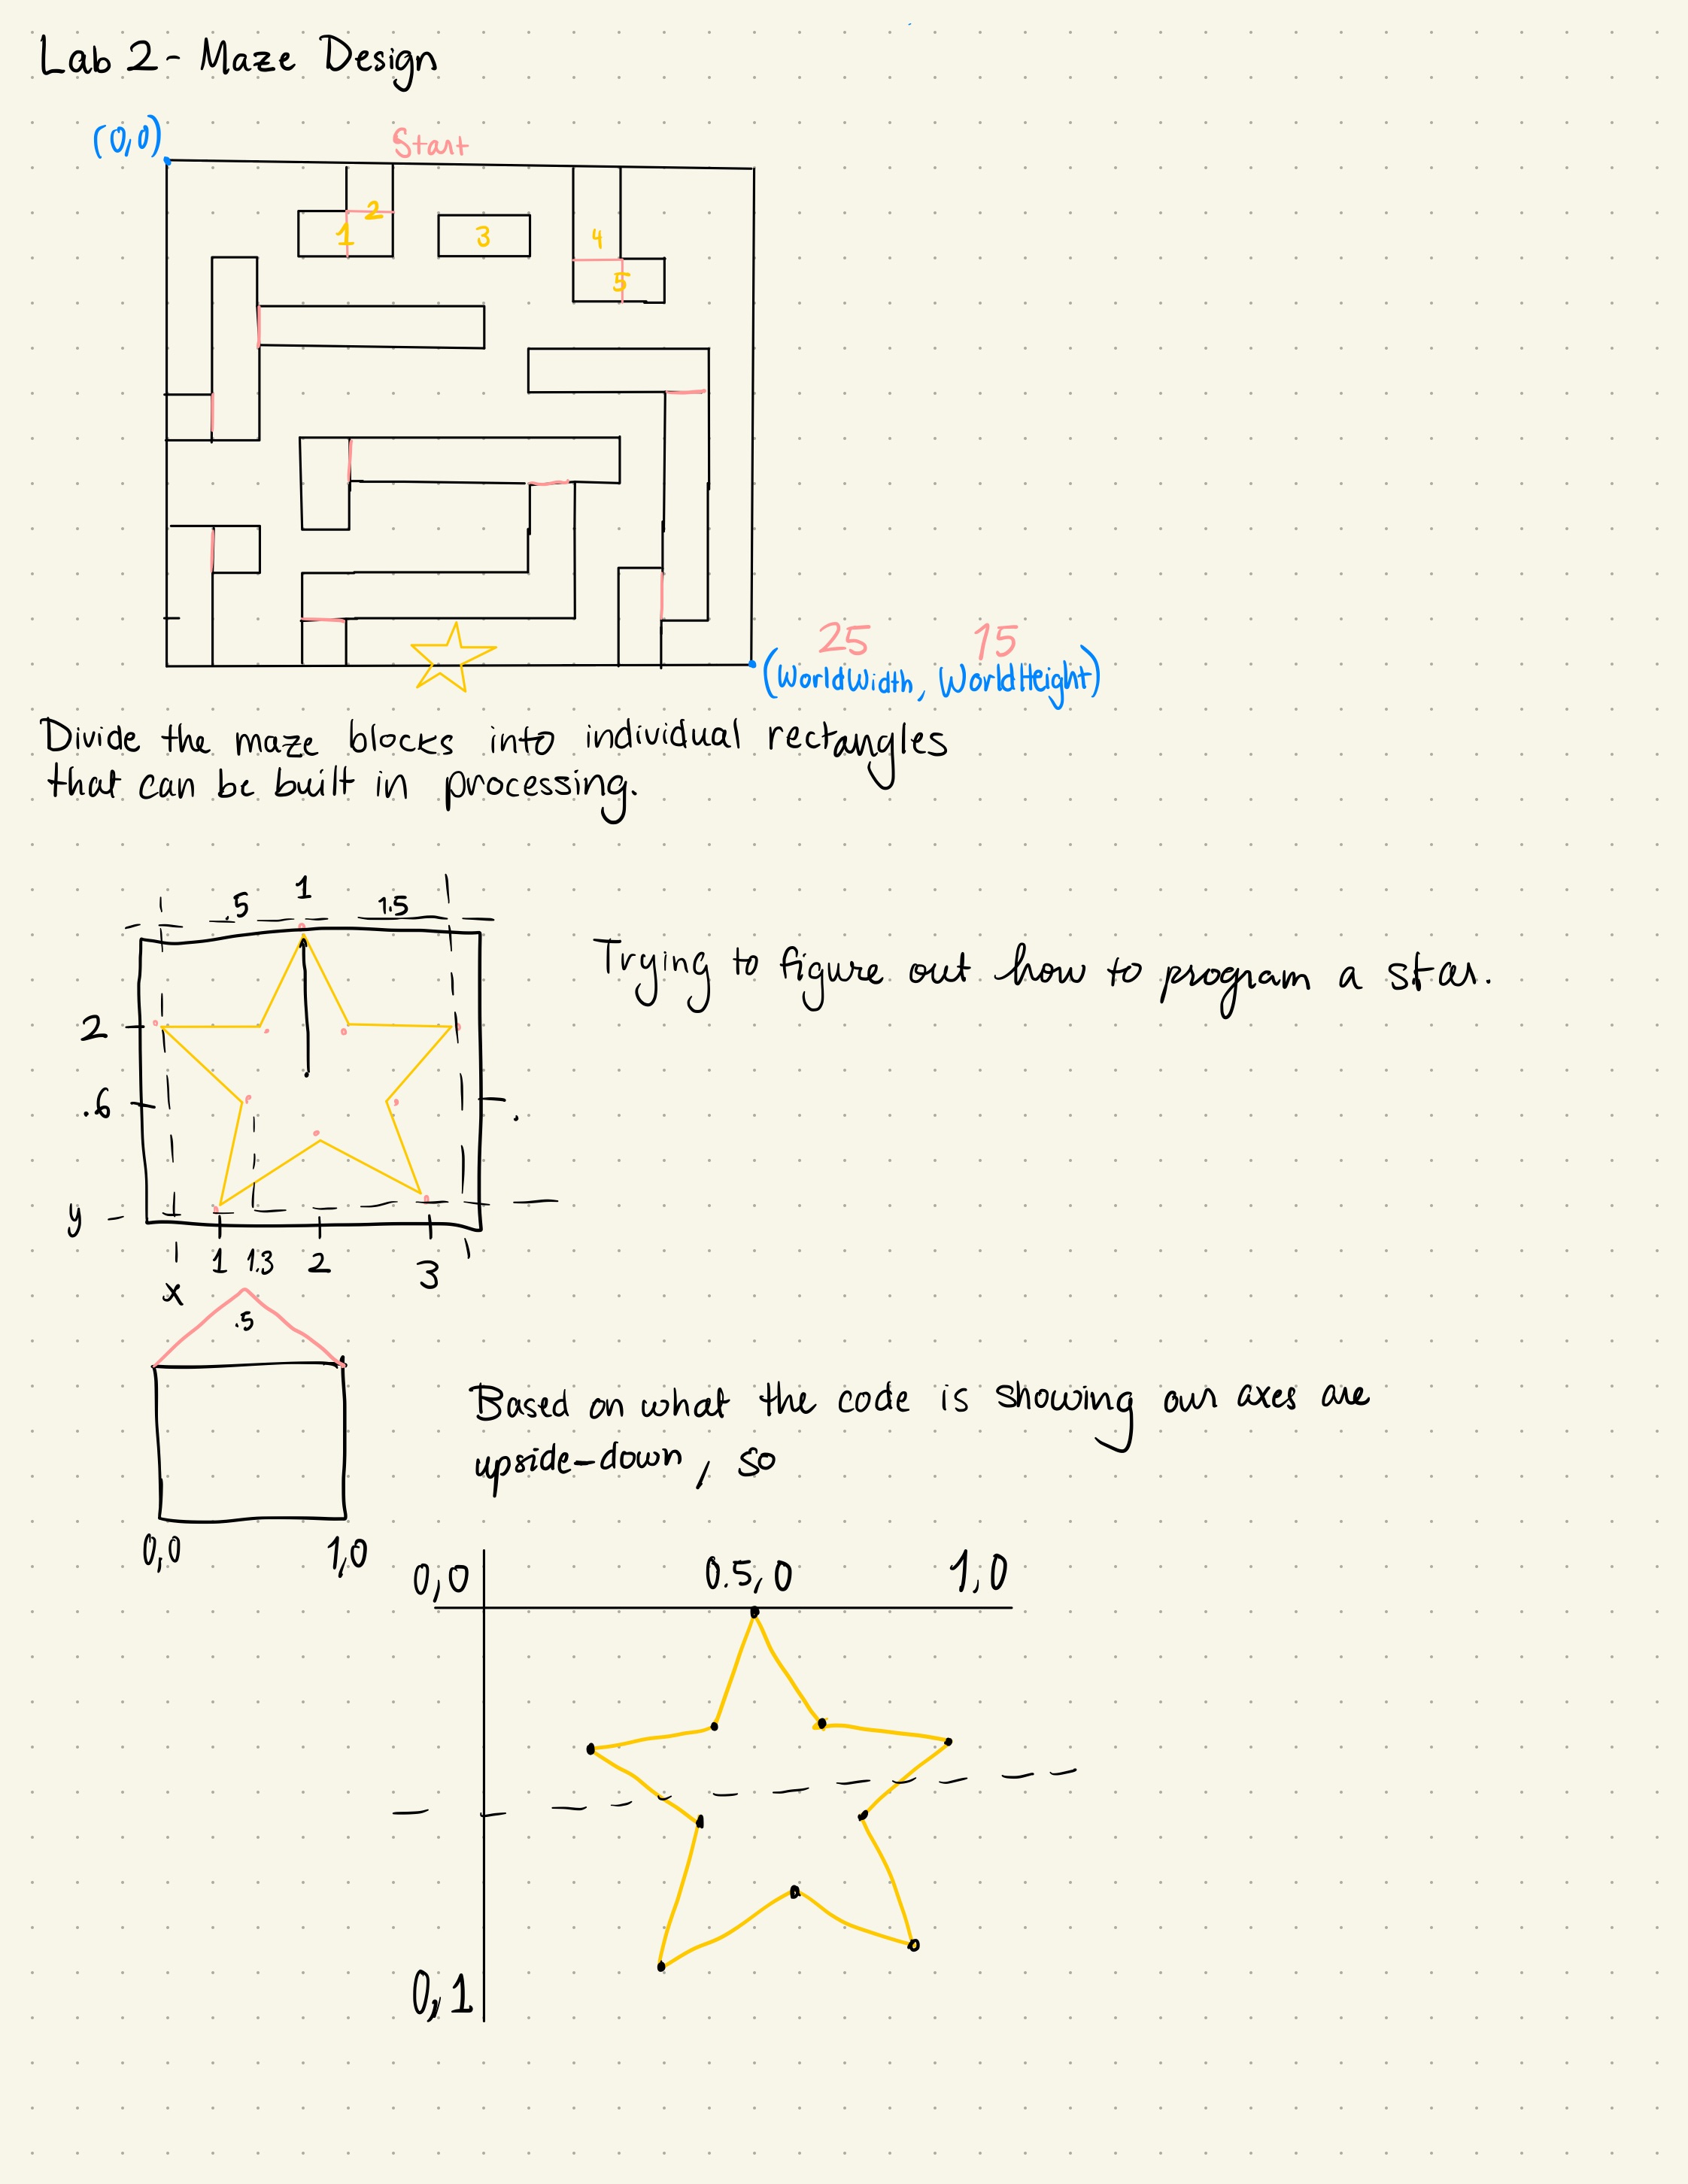 Lab 2 - Maze Design
(0,0)
Start
2
1
3
4
5
25 15
(WorldWidth, WorldHeight)
Divide the maze blocks into individual rectangles
that can be built in processing.
.5 1 1.5
Trying to figure out how to program a star.
2
.6
y
1 1.3 2 3
x
.5
Based on what the code is showing our axes are
upside-down, so
0,0 1,0
0,0 0.5,0 1,0
0,1